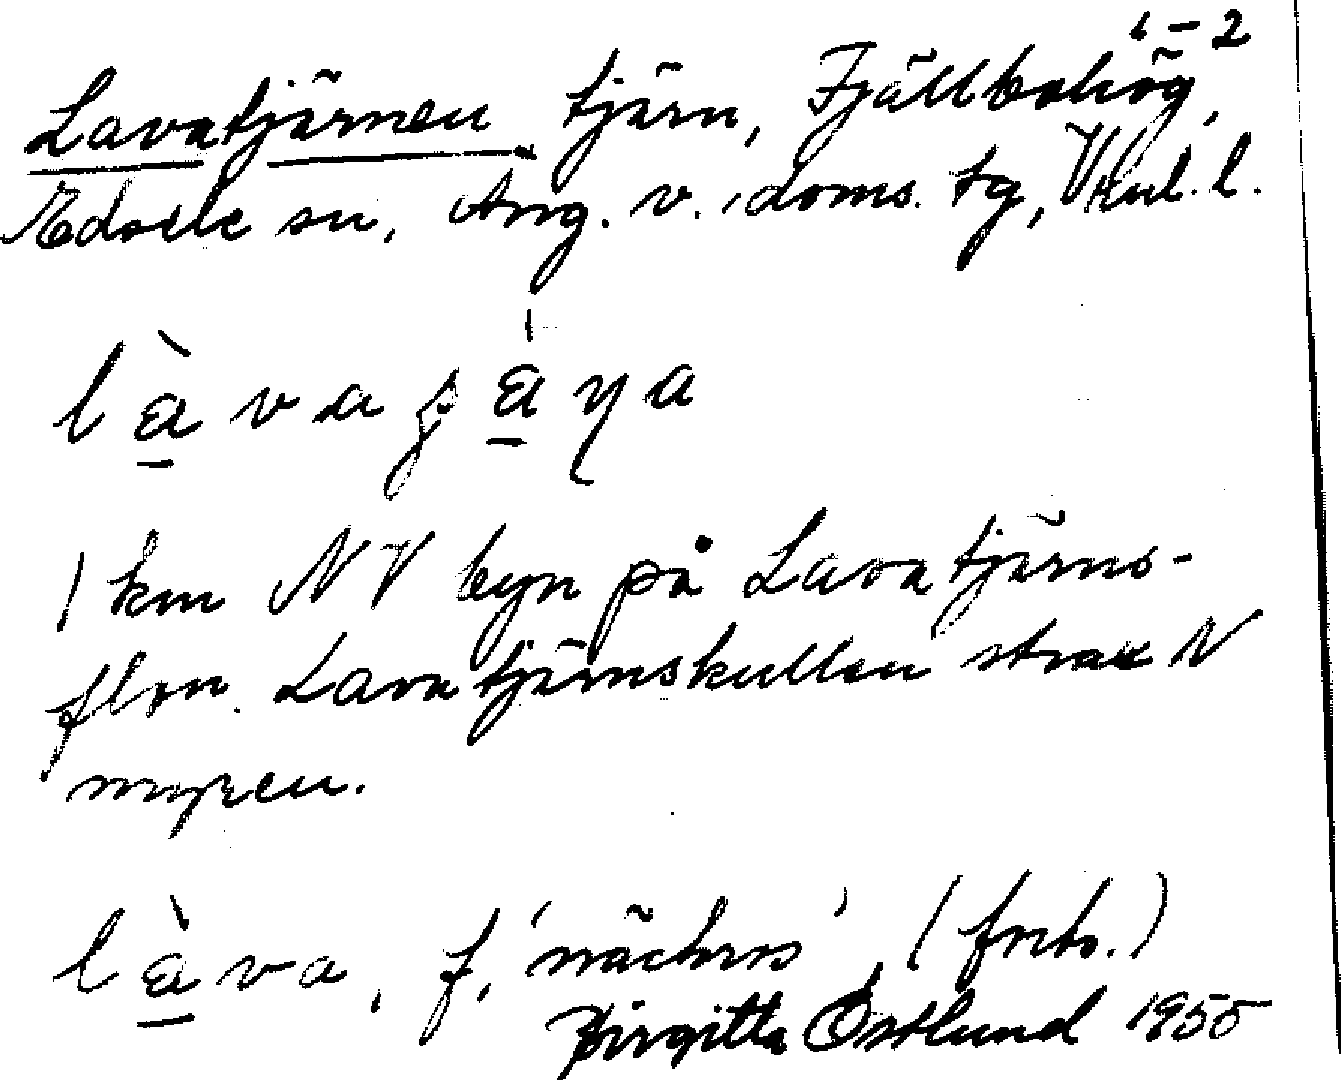 1-2
Lavatjärnen tjärn, Fjällbohög,
Edsele sn, Ång. v. doms. tg, Vnl. l.
là̱va ʂá̱ɳa
1 km NV byn på Lavatjärns-
flon. Lavatjärnskullen strax N
myren.
là̱va, f, 'näckros', (forts.)
Birgitta Östlund 1955